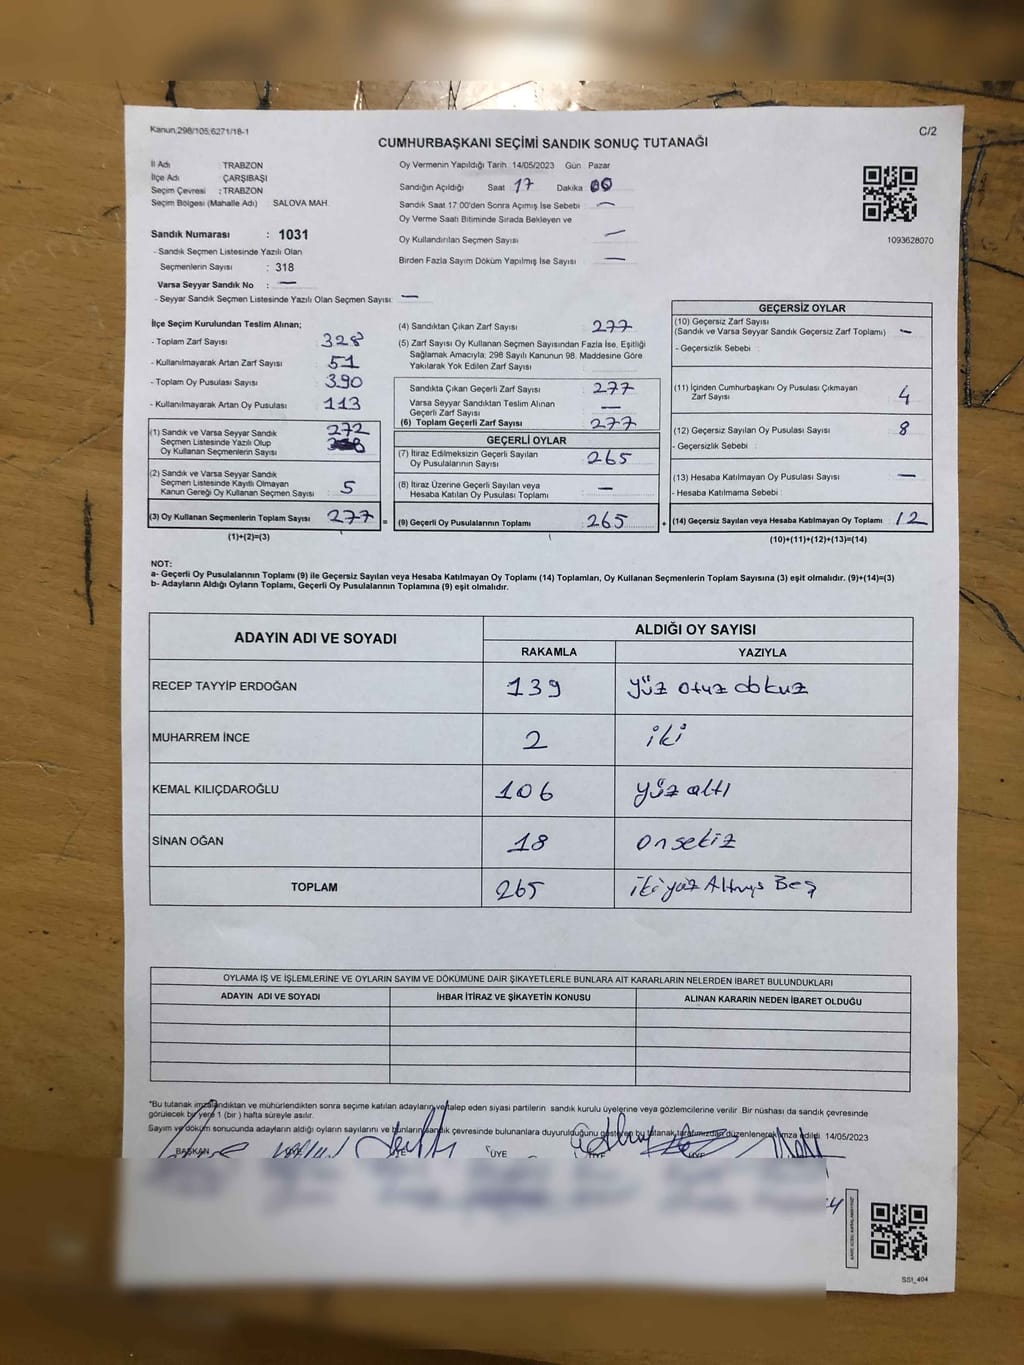 Kanun,298/105;6271/18-1
C/2
CUMHURBAŞKANI SEÇİMİ SANDIK SONUÇ TUTANAĞI
İl Adı : TRABZON
İlçe Adı : ÇARŞIBAŞI
Seçim Çevresi : TRABZON
Seçim Bölgesi (Mahalle Adı) SALOVA MAH.
Sandık Numarası : 1031
- Sandık Seçmen Listesinde Yazılı Olan
Seçmenlerin Sayısı : 318
Varsa Seyyar Sandık No : —
- Seyyar Sandık Seçmen Listesinde Yazılı Olan Seçmen Sayısı: —
Oy Vermenin Yapıldığı Tarih 14/05/2023 Gün Pazar
Sandığın Açıldığı Saat 17 Dakika 00
Sandık Saat 17:00'den Sonra Açımış İse Sebebi —
Oy Verme Saati Bitiminde Sırada Bekleyen ve
Oy Kullandırılan Seçmen Sayısı —
Birden Fazla Sayım Döküm Yapılmış İse Sayısı —
1093628070
İlçe Seçim Kurulundan Teslim Alınan;
- Toplam Zarf Sayısı 328
- Kullanılmayarak Artan Zarf Sayısı 51
- Toplam Oy Pusulası Sayısı 390
- Kullanılmayarak Artan Oy Pusulası 113
(1) Sandık ve Varsa Seyyar Sandık 272
Seçmen Listesinde Yazılı Olup
Oy Kullanan Seçmenlerin Sayısı
(2) Sandık ve Varsa Seyyar Sandık
Seçmen Listesinde Kayıtlı Olmayan
Kanun Gereği Oy Kullanan Seçmen Sayısı 5
(3) Oy Kullanan Seçmenlerin Toplam Sayısı 277 =
(1)+(2)=(3)
(4) Sandıktan Çıkan Zarf Sayısı 277
(5) Zarf Sayısı Oy Kullanan Seçmen Sayısından Fazla İse, Eşitliği
Sağlamak Amacıyla; 298 Sayılı Kanunun 98. Maddesine Göre
Yakılarak Yok Edilen Zarf Sayısı
Sandıkta Çıkan Geçerli Zarf Sayısı 277
Varsa Seyyar Sandıktan Teslim Alınan
Geçerli Zarf Sayısı —
(6) Toplam Geçerli Zarf Sayısı 277
GEÇERLİ OYLAR
(7) İtiraz Edilmeksizin Geçerli Sayılan
Oy Pusulalarının Sayısı 265
(8) İtiraz Üzerine Geçerli Sayılan veya
Hesaba Katılan Oy Pusulası Toplamı —
(9) Geçerli Oy Pusulalarının Toplamı 265 +
GEÇERSİZ OYLAR
(10) Geçersiz Zarf Sayısı
(Sandık ve Varsa Seyyar Sandık Geçersiz Zarf Toplamı) —
- Geçersizlik Sebebi :
(11) İçinden Cumhurbaşkanı Oy Pusulası Çıkmayan
Zarf Sayısı 4
(12) Geçersiz Sayılan Oy Pusulası Sayısı 8
- Geçersizlik Sebebi :
(13) Hesaba Katılmayan Oy Pusulası Sayısı —
- Hesaba Katılmama Sebebi :
(14) Geçersiz Sayılan veya Hesaba Katılmayan Oy Toplamı 12
(10)+(11)+(12)+(13)=(14)
NOT:
a- Geçerli Oy Pusulalarının Toplamı (9) ile Geçersiz Sayılan veya Hesaba Katılmayan Oy Toplamı (14) Toplamları, Oy Kullanan Seçmenlerin Toplam Sayısına (3) eşit olmalıdır. (9)+(14)=(3)
b- Adayların Aldığı Oyların Toplamı, Geçerli Oy Pusulalarının Toplamına (9) eşit olmalıdır.
ADAYIN ADI VE SOYADI
ALDIĞI OY SAYISI
RAKAMLA YAZIYLA
RECEP TAYYİP ERDOĞAN 139 yüz otuz dokuz
MUHARREM İNCE 2 iki
KEMAL KILIÇDAROĞLU 106 yüz altı
SİNAN OĞAN 18 on sekiz
TOPLAM 265 iki yüz Altmış Beş
OYLAMA İŞ VE İŞLEMLERİNE VE OYLARIN SAYIM VE DÖKÜMÜNE DAİR ŞİKAYETLERLE BUNLARA AİT KARARLARIN NELERDEN İBARET BULUNDUKLARI
ADAYIN ADI VE SOYADI İHBAR İTİRAZ VE ŞİKAYETİN KONUSU ALINAN KARARIN NEDEN İBARET OLDUĞU
*Bu tutanak imzalandıktan ve mühürlendikten sonra seçime katılan adayların ve talep eden siyasi partilerin sandık kurulu üyelerine veya gözlemcilerine verilir. Bir nüshası da sandık çevresinde
görülecek bir yere 1 (bir) hafta süreyle asılır.
Sayım ve döküm sonucunda adayların aldığı oyların sayılarını ve bunların sandık çevresinde bulunanlara duyurulduğunu gösteren bu tutanak tarafımızdan düzenlenerek imza edildi. 14/05/2023
BAŞKAN ÜYE ÜYE ÜYE ÜYE ÜYE
SSt_404